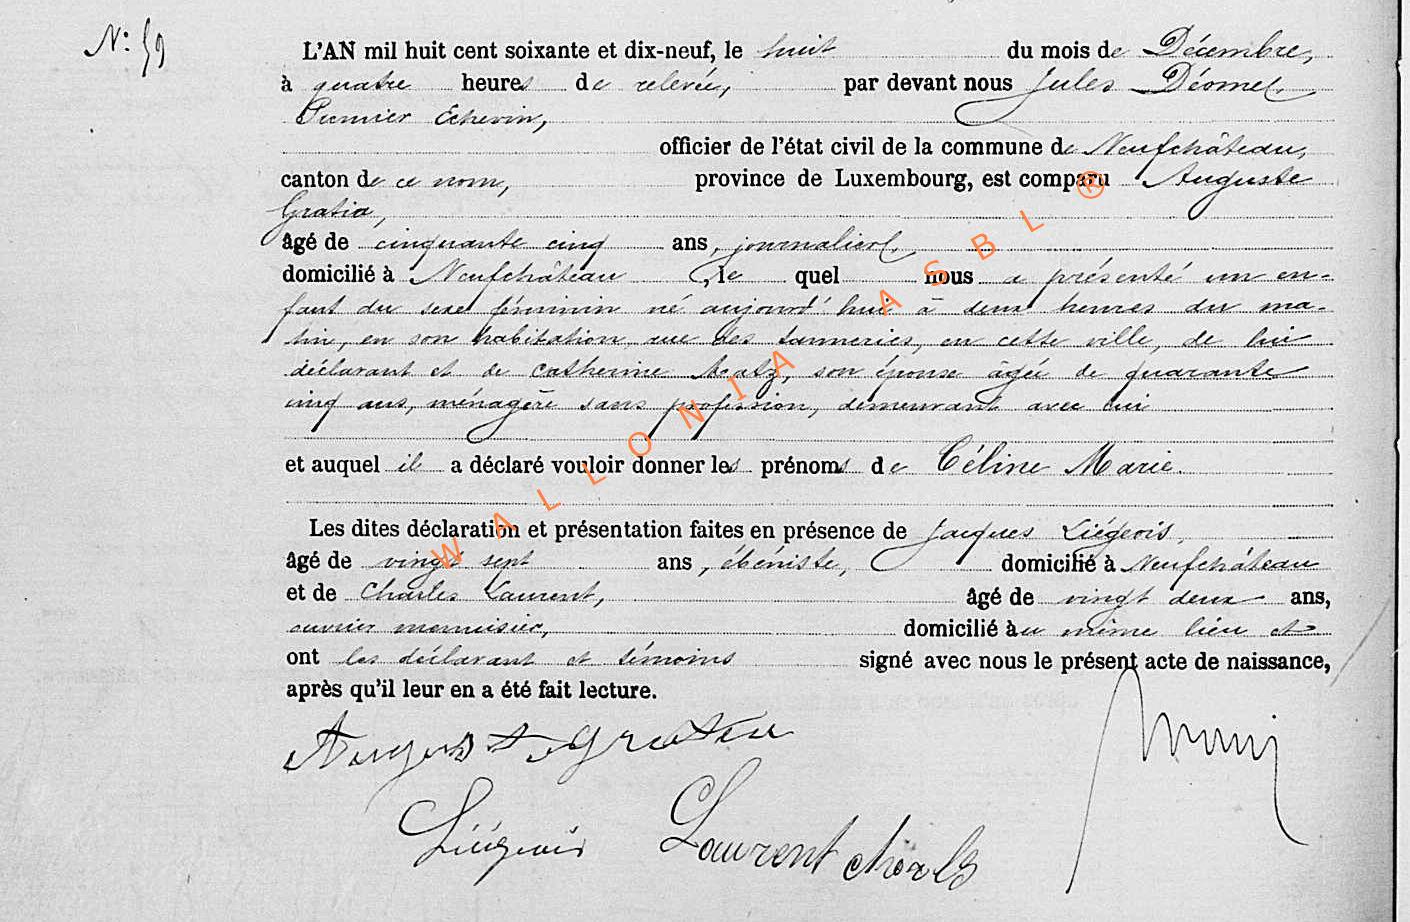 N: 59
L'AN mil huit cent soixante et dix-neuf, le huit du mois de Décembre,
à quatre heures de relevée, par devant nous Jules Déome
Premier Echevin,
officier de l'état civil de la commune de Neufchâteau,
canton de ce nom, province de Luxembourg, est comparu Auguste
Gratia,
âgé de cinquante cinq ans, journalier,
domicilié à Neufchâteau, le quel nous a présenté un en-
fant du sexe féminin né aujourd'hui à deux heures du ma-
tin, en son habitation, rue des tanneries, en cette ville, de lui
déclarant et de Catherine son épouse âgée de quarante
cinq ans, ménagère sans profession, demeurant avec lui
et auquel il a déclaré vouloir donner les prénoms de Céline Marie.
Les dites déclaration et présentation faites en présence de Jacques Liégeois,
âgé de vingt sept ans, ébéniste, domicilié à Neufchâteau
et de Charles Laurent, âgé de vingt deux ans,
ouvrier menuisier, domicilié au même lieu et
ont les déclarant et témoins signé avec nous le présent acte de naissance,
après qu'il leur en a été fait lecture.
August Gratia
Liégeois Laurent Charls
WALLONIA ASBL ®